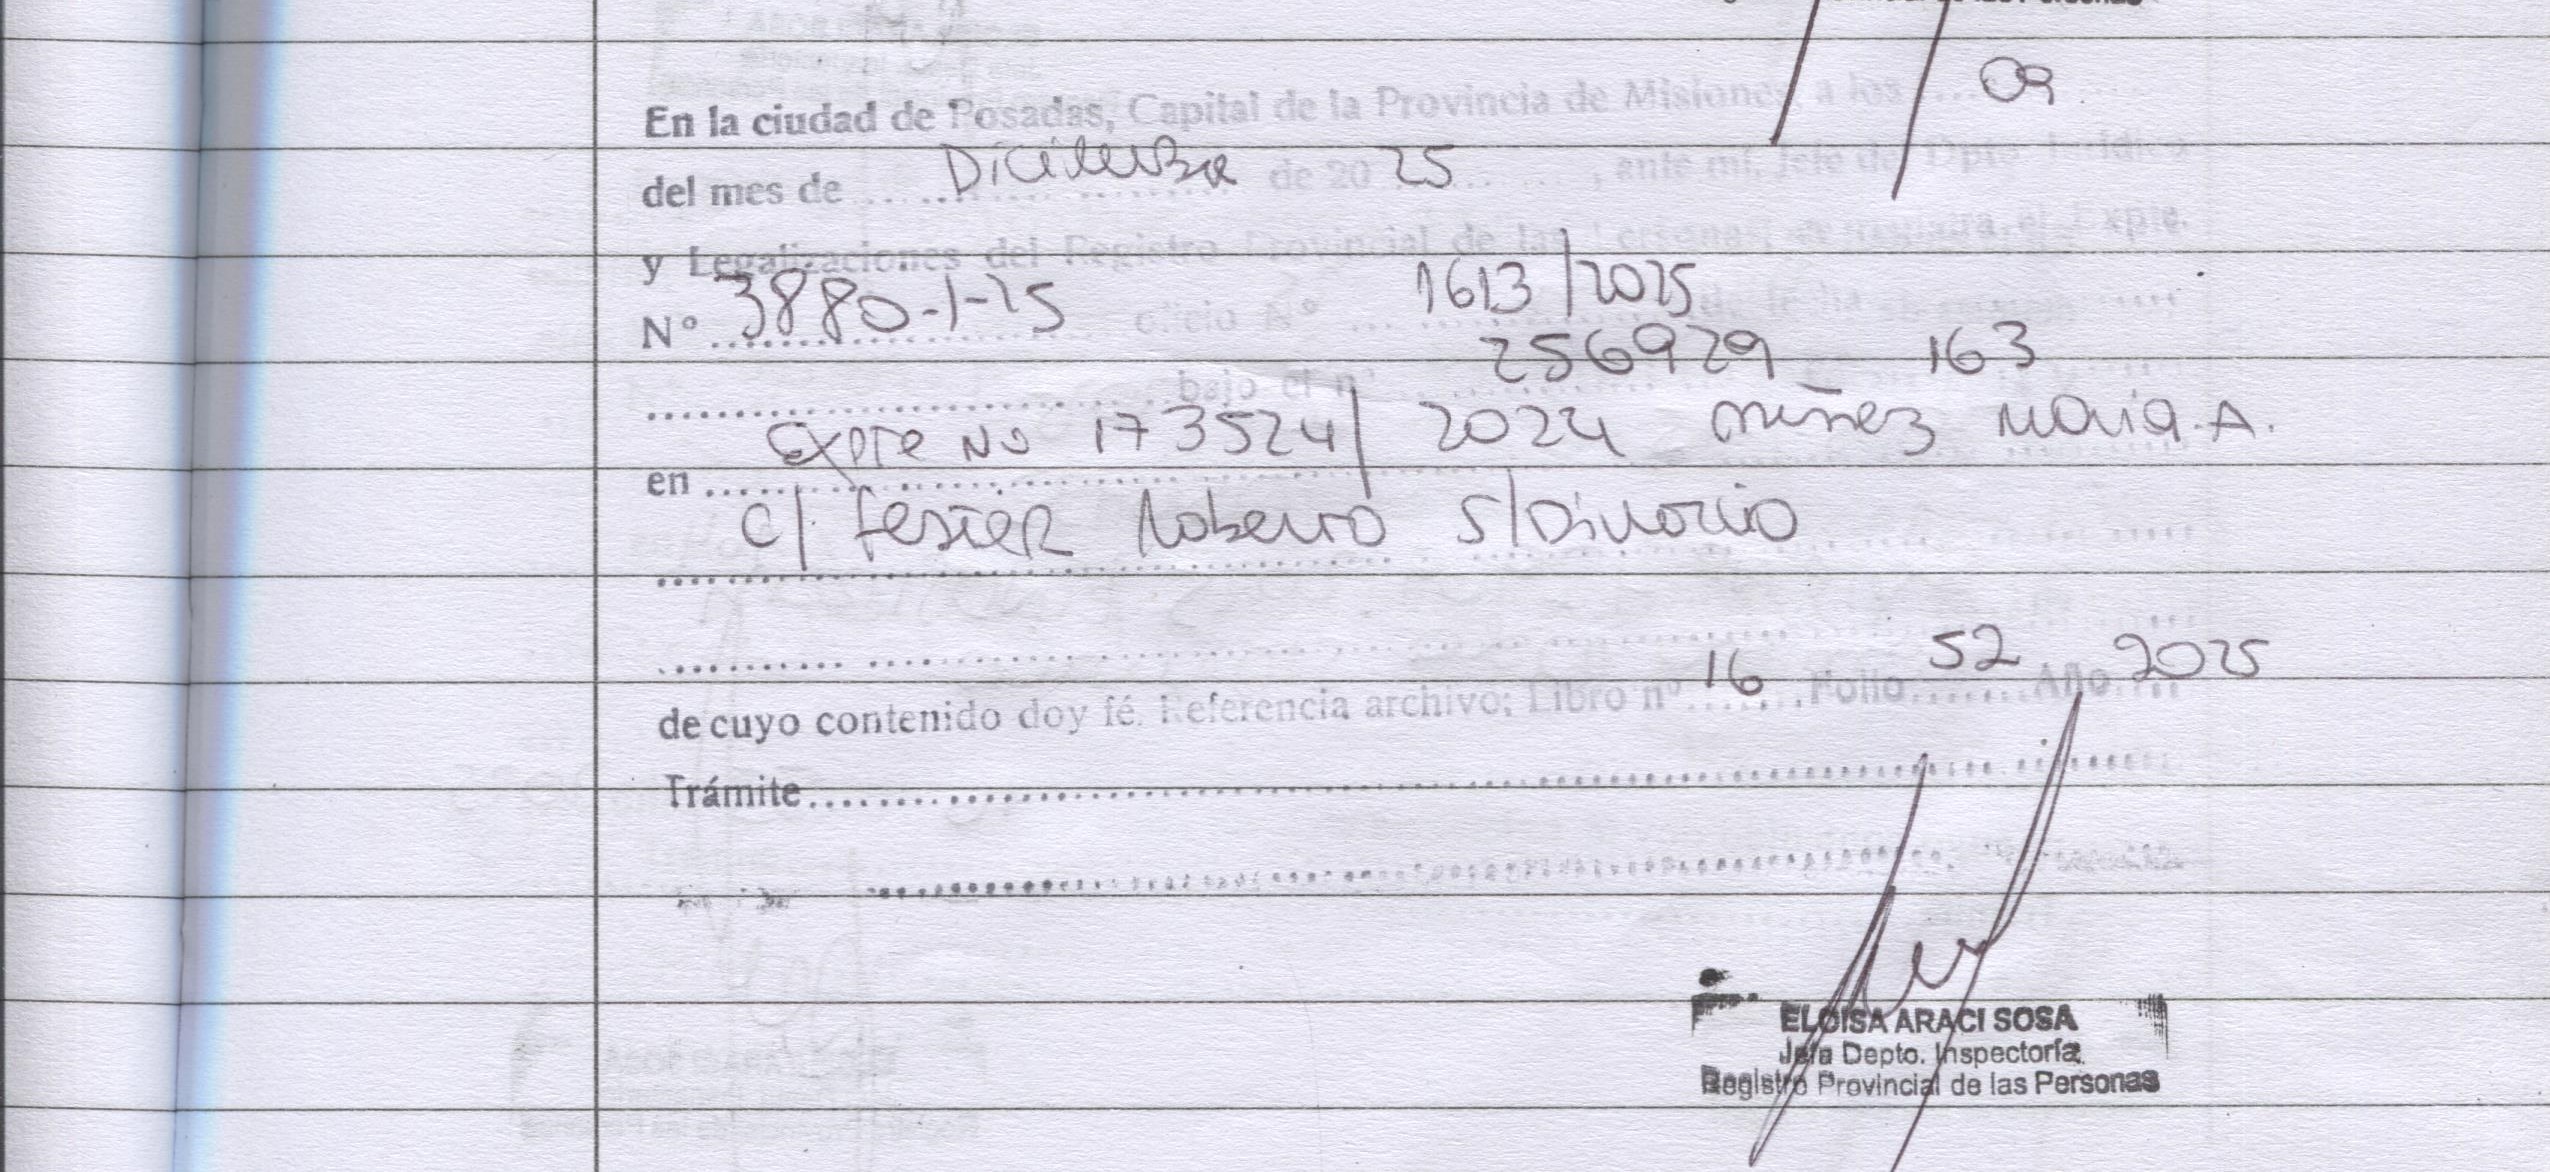 En la ciudad de Posadas, Capital de la Provincia de Misiones, a los 09
del mes de Diciembre de 20 25, ante mí, Jefe del Dpto. Jurídico
y Legalizaciones del Registro Provincial de las Personas, se registra el Expte.
Nº 3880-1-25 oficio Nº 1613/2025 de fecha
256929_163
bajo el nº
Expte No 173524/2024 Nuñez Maria A.
en
c/ Lester Roberto S/Divorcio
16 52 2025
de cuyo contenido doy fé. Referencia archivo; Libro nº Folio Año
Trámite
ELOISA ARACI SOSA
Jefa Depto. Inspectoría
Registro Provincial de las Personas